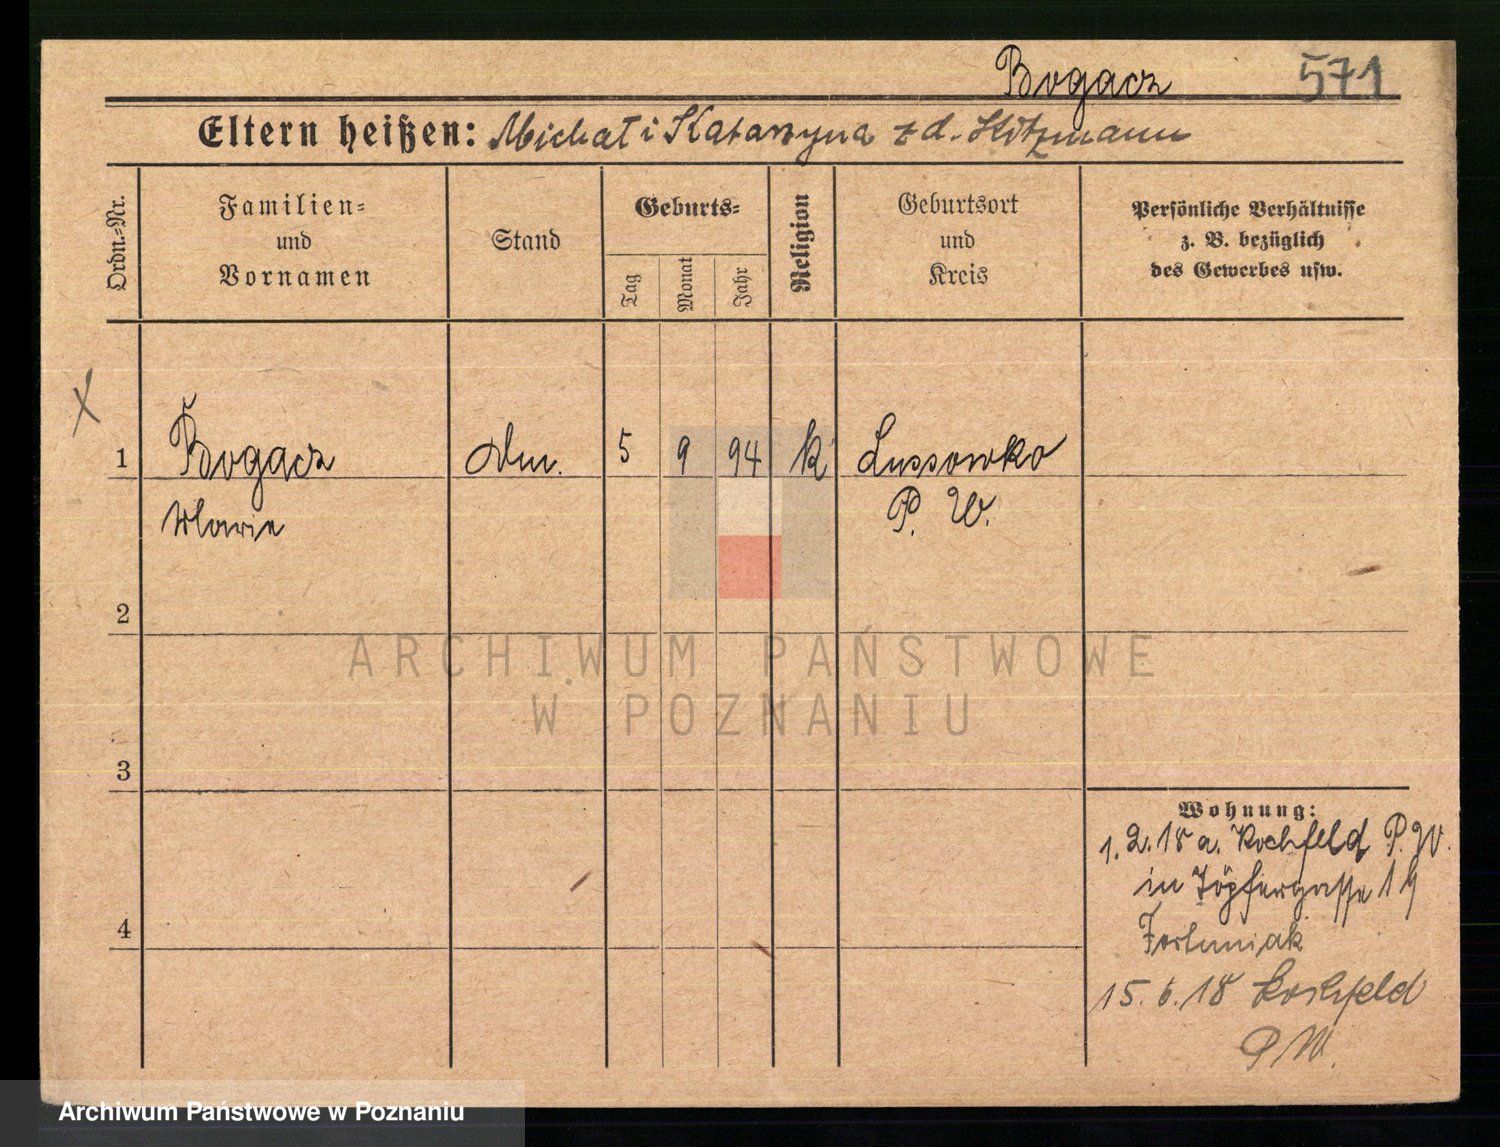 Bogacz 571
Eltern heißen: Michał i Katarzyna z d. Hitzmann
Ordn.-Nr.
Familien-
und
Vornamen
Stand
Geburts-
Tag
Monat
Jahr
Religion
Geburtsort
und
Kreis
Persönliche Verhältnisse
z. B. bezüglich
des Gewerbes usw.
X
1 Bogacz 5 9 94 k Lussowko
Marie P. W.
2
3
4
Wohnung:
1.2.18 a. Kochfeld P. W.
in Töpfergasse
Fortuniak
15.6.18 Kochfeld
P W.
ARCHIWUM PAŃSTWOWE
W POZNANIU
Archiwum Państwowe w Poznaniu